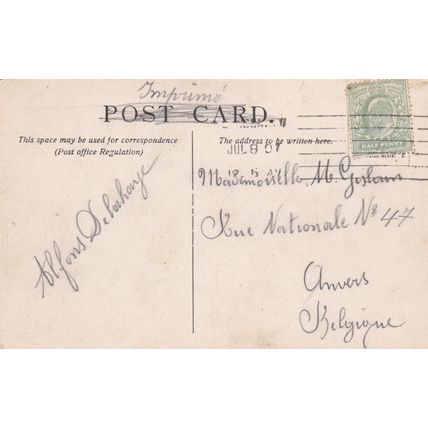 Imprimé
POST CARD.
This space may be used for correspondence
(Post office Regulation)
The address to be written here.
JUL 8 07
HALF PENNY
Alfons Delahaye
Mademoiselle M. Gislain
Rue Nationale No 47
Anvers
Belgique